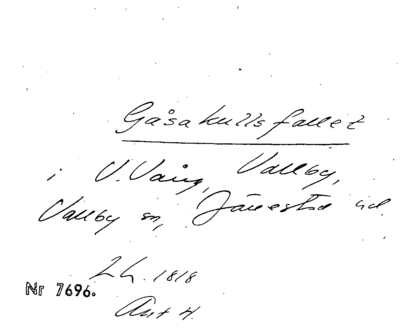 Gåsakullsfallet
i V. Vång, Vallby,
Vallby sn, Järrestad hd.
LL. 1818
Nr 7696.
Akt 4.